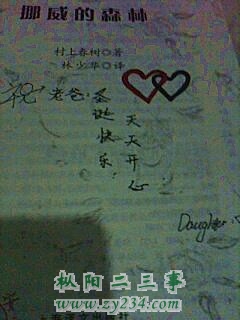 挪威的森林
村上春树◎著
林少华◎译
祝老爸:
圣诞快乐!
天天开心
Daughter
枞阳二三事
www.zy234.com